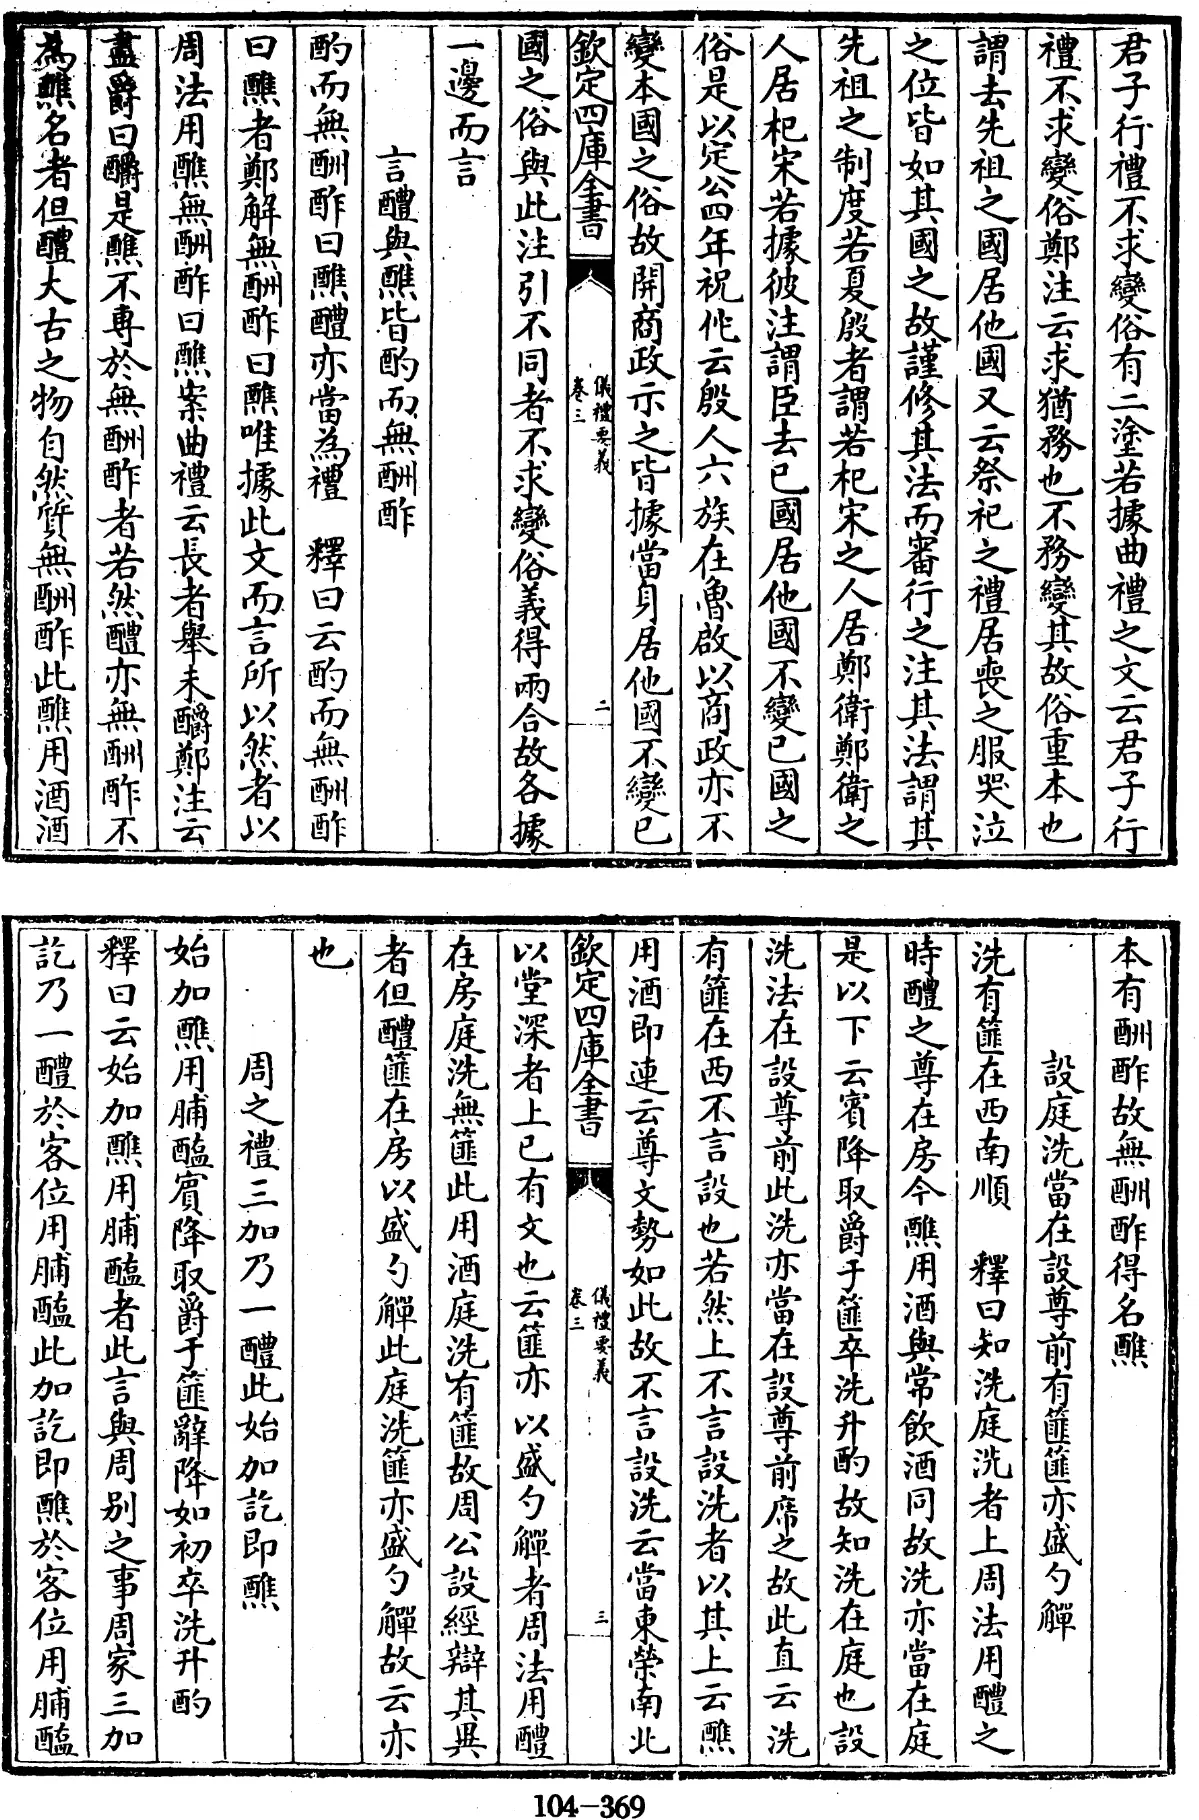 君子行禮不求變俗有二塗若據曲禮之文云君子行
禮不求變俗鄭注云求猶務也不務變其故俗重本也
謂去先祖之國居他國又云祭祀之禮居喪之服哭泣
之位皆如其國之故謹修其法而審行之注其法謂其
先祖之制度若夏殷者謂若杞宋之人居鄭衛鄭衛之
人居杞宋若據彼注謂臣去已國居他國不變已國之
俗是以定公四年祝佗云殷人六族在魯啟以商政亦不
變本國之俗故開商政示之皆據當身居他國不變已
欽定四庫全書
儀禮要義
卷三
二
國之俗與此注引不同者不求變俗義得兩合故各據
一邊而言
言醴與醮皆酌而無酬酢
酌而無酬酢曰醮醴亦當為禮 釋曰云酌而無酬酢
曰醮者鄭解無酬酢曰醮唯據此文而言所以然者以
周法用醮無酬酢曰醮案曲禮云長者舉未釂鄭注云
盡爵曰釂是醮不專於無酬酢者若然醴亦無酬酢不
為醮名者但醴大古之物自然質無酬酢此醮用酒酒
本有酬酢故無酬酢得名醮
設庭洗當在設尊前有篚篚亦盛勺觶
洗有篚在西南順 釋曰知洗庭洗者上周法用醴之
時醴之尊在房今醮用酒與常飲酒同故洗亦當在庭
是以下云賓降取爵于篚卒洗升酌故知洗在庭也設
洗法在設尊前此洗亦當在設尊前席之故此直云洗
有篚在西不言設也若然上不言設洗者以其上云醮
用酒即連云尊文勢如此故不言設洗云當東榮南北
欽定四庫全書
儀禮要義
卷三
三
以堂深者上已有文也云篚亦以盛勺觶者周法用醴
在房庭洗無篚此用酒庭洗有篚故周公設經辯其異
者但醴篚在房以盛勺觶此庭洗篚亦盛勺觶故云亦
也
周之禮三加乃一醴此始加訖即醮
始加醮用脯醢賓降取爵于篚辭降如初卒洗升酌
釋曰云始加醮用脯醢者此言與周別之事周家三加
訖乃一醴於客位用脯醢此加訖即醮於客位用脯醢
104-369